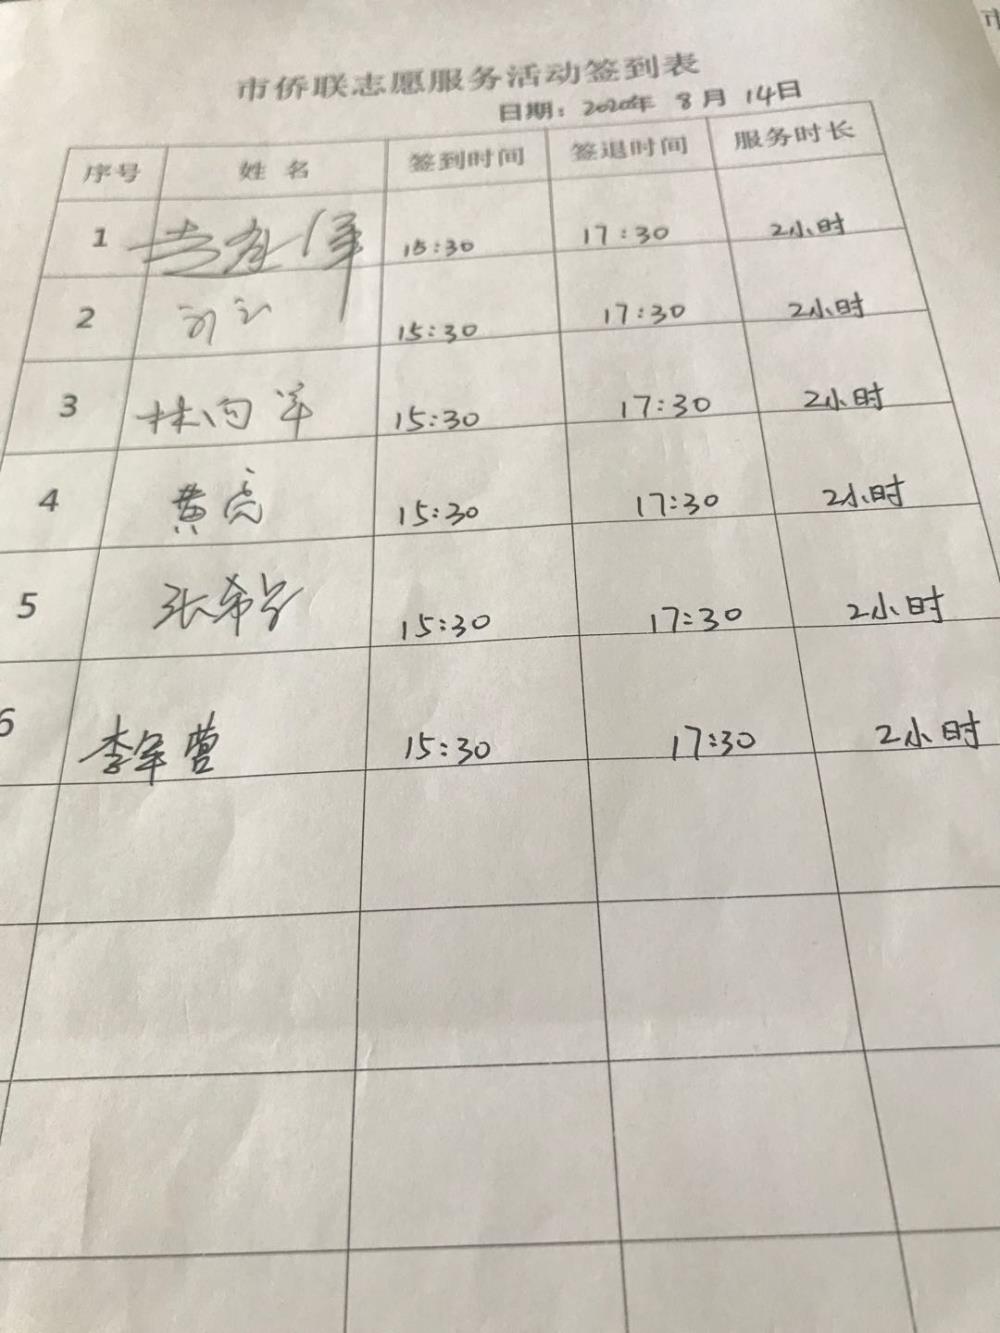 市侨联志愿服务活动签到表
日期：2020年 8月 14日
序号 姓名 签到时间 签退时间 服务时长
1 15:30 17:30 2小时
2 15:30 17:30 2小时
3 林向洋 15:30 17:30 2小时
4 黄亮 15:30 17:30 2小时
5 15:30 17:30 2小时
6 李军营 15:30 17:30 2小时